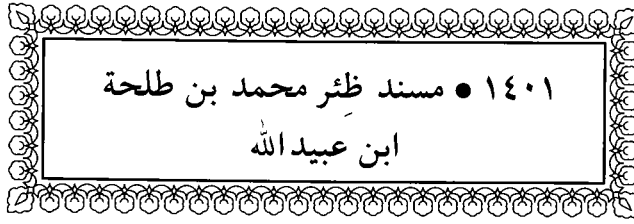 ١٤٠١ • مسند ظِئر محمد بن طلحة
ابن عبيدالله